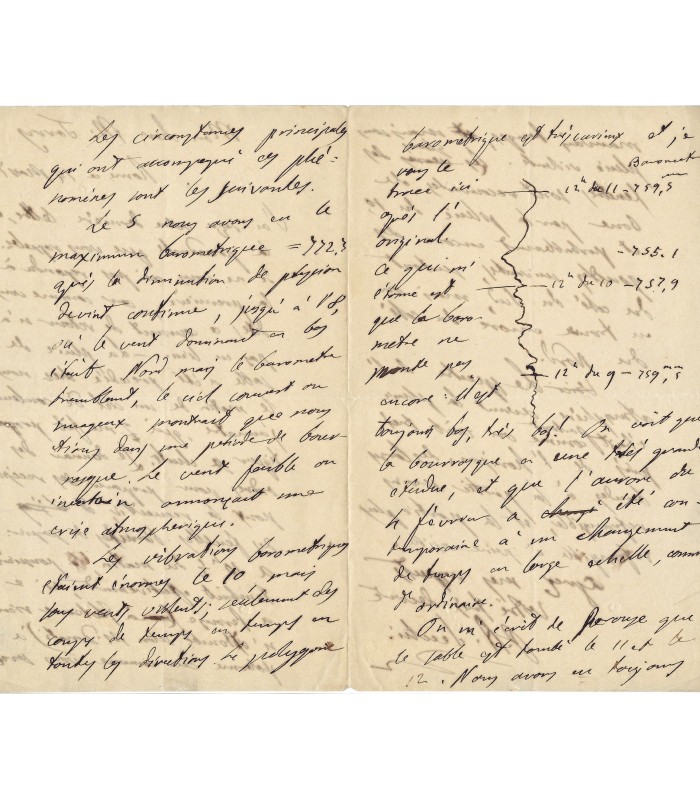 Les circonstances principales
qui ont accompagné ces phé-
nomènes sont les suivantes.
Le 5 nous avons eu le
maximum barometrique = 772,3
après la diminution de
devint continue, jusqu'à l'8,
où le vent dominant en bas
était Nord mais le barometre
tremblant, le ciel couvert ou
nuageux montrait que nous
étions dans une periode de bour-
rasque. Le vent faible ou
incertain annonçait une
crise atmospherique.
Les vibrations barometriques
étaient énormes le 10 mais
sans vents violents; seulement des
coups de temps en temps en
toutes les directions. Le polygone
barometrique est très curieux et je
vous le
trace ici
après l'
original
ce qui m'
étonne est
que le baro-
metre ne
monte pas
encore: il est
Baromet
12h du 11 - 759,5 mm
- 755.1
12h du 10 - 757,9
12h du 9 - 759 mm, 5
toujours bas, très bas! On voit que
la bourrasque a une très grande
étendue, et que l'aurore du
4 février a été con
temporaine à un changement
de temps en large echelle, comme
d'ordinaire.
On m'écrit de Perouse que
le sable est tombé le 11 et le
12. Nous avons eu toujours